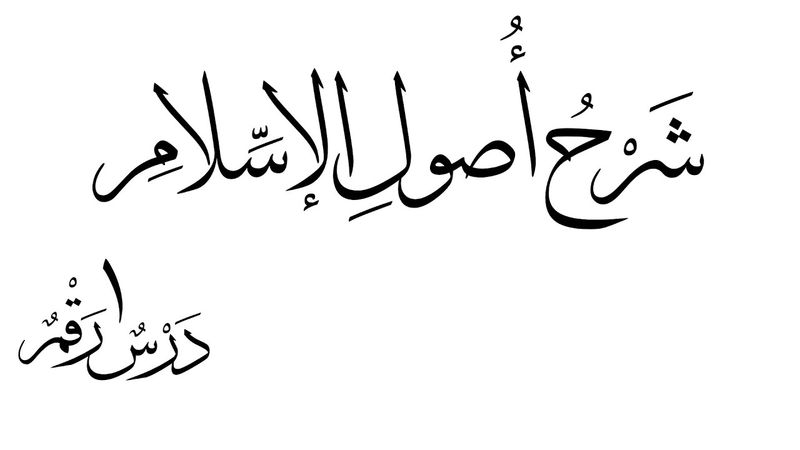 شَرْحُ أُصولِ الإسِّلامِ
دَرْسٌ ١ رَقْمٌ